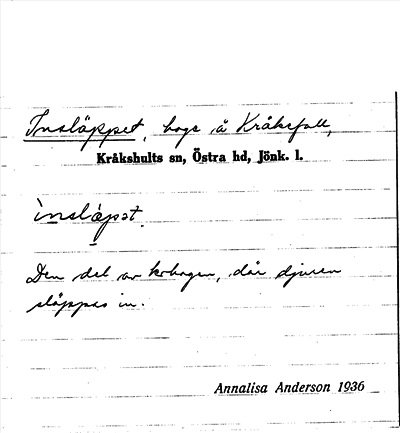 Insläppet, hage å Kråksfall,
Kråkshults sn, Östra hd, Jönk. l.
ìnslä́pət.
Den del av kohagen, där djuren
släppas in.
Annalisa Anderson 1936